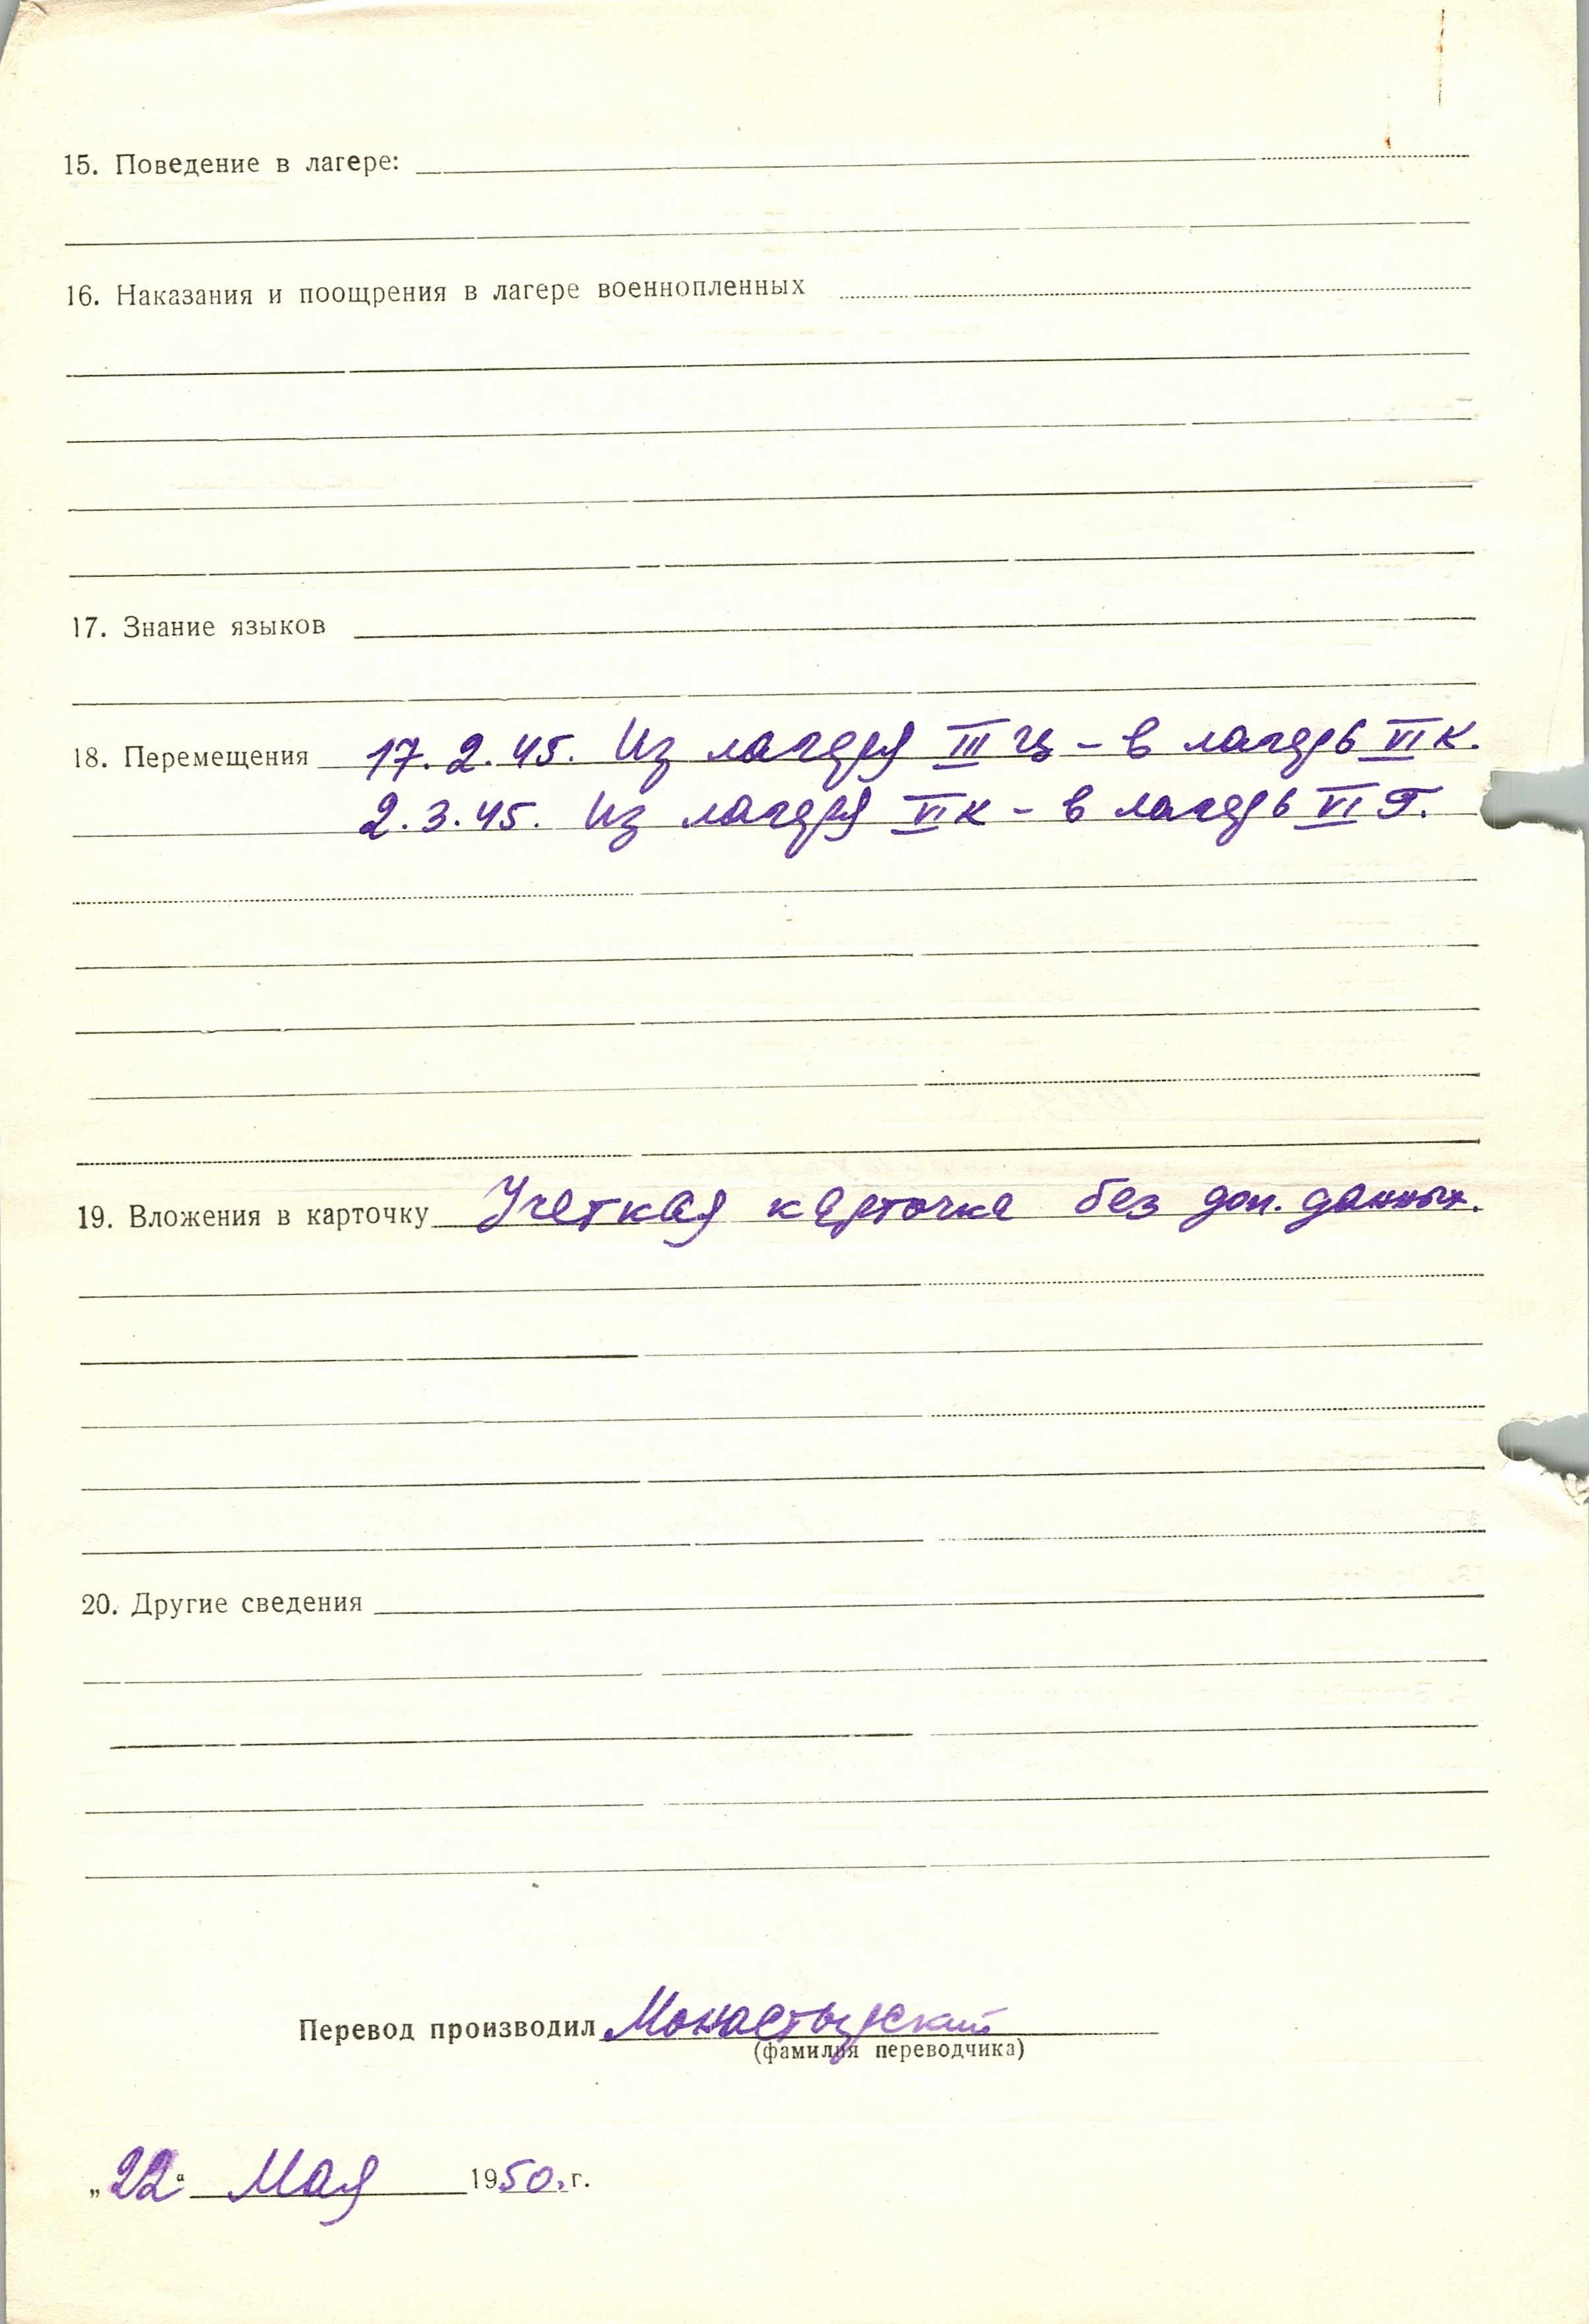 15. Поведение в лагере:
16. Наказания и поощрения в лагере военнопленных
17. Знание языков
18. Перемещения 17.2.45. Из лагеря III Ц – в лагерь VI К.
2.3.45. Из лагеря VI К – в лагерь VI Г.
19. Вложения в карточку Учеткая карточка без доп. данных.
20. Другие сведения
Перевод производил Монастырский
(фамилия переводчика)
„22“ Мая 1950. г.